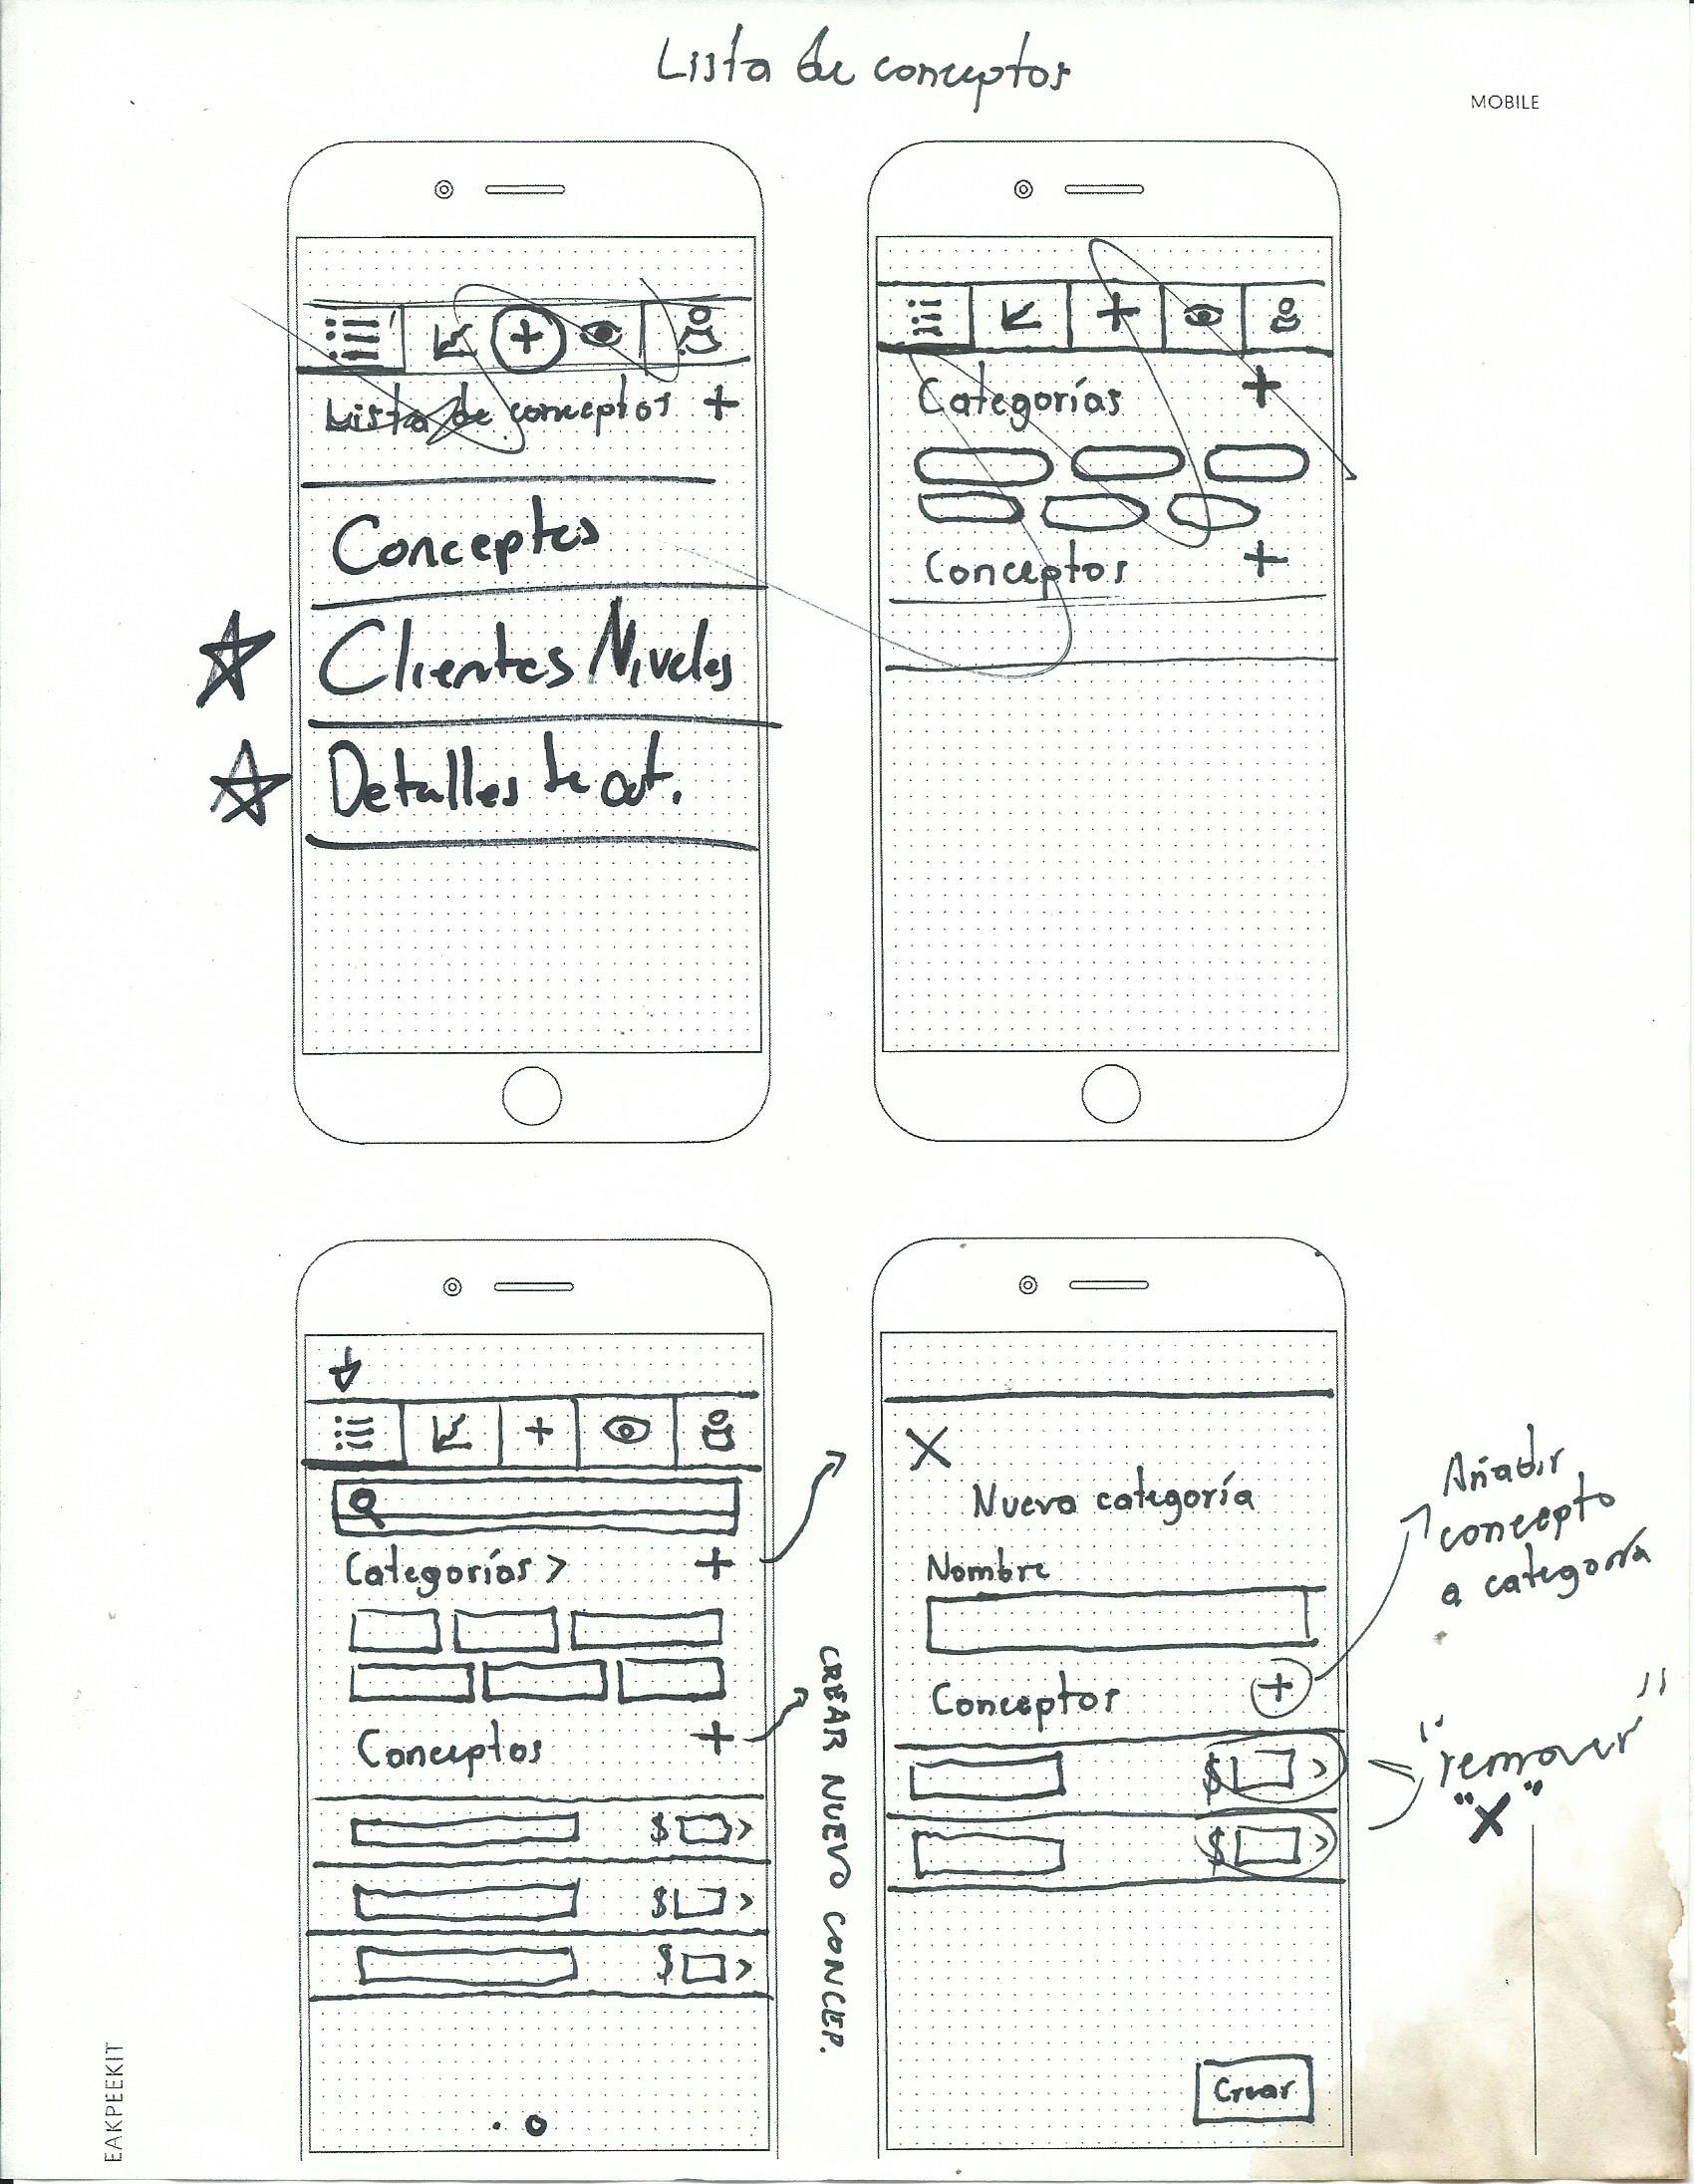 Lista de conceptos
MOBILE
+
Lista de conceptos +
Conceptos
Clientes Niveles
Detalles de cot.
+
Categorías +
Conceptos +
+
Categorías > +
Conceptos +
$ >
$ >
$ >
CREAR NUEVO CONCEP.
X
Nueva categoría
Nombre
Conceptos +
$ >
$ >
Crear
Añadir
concepto
a categoría
"remover"
"X"
EAKPEEKIT